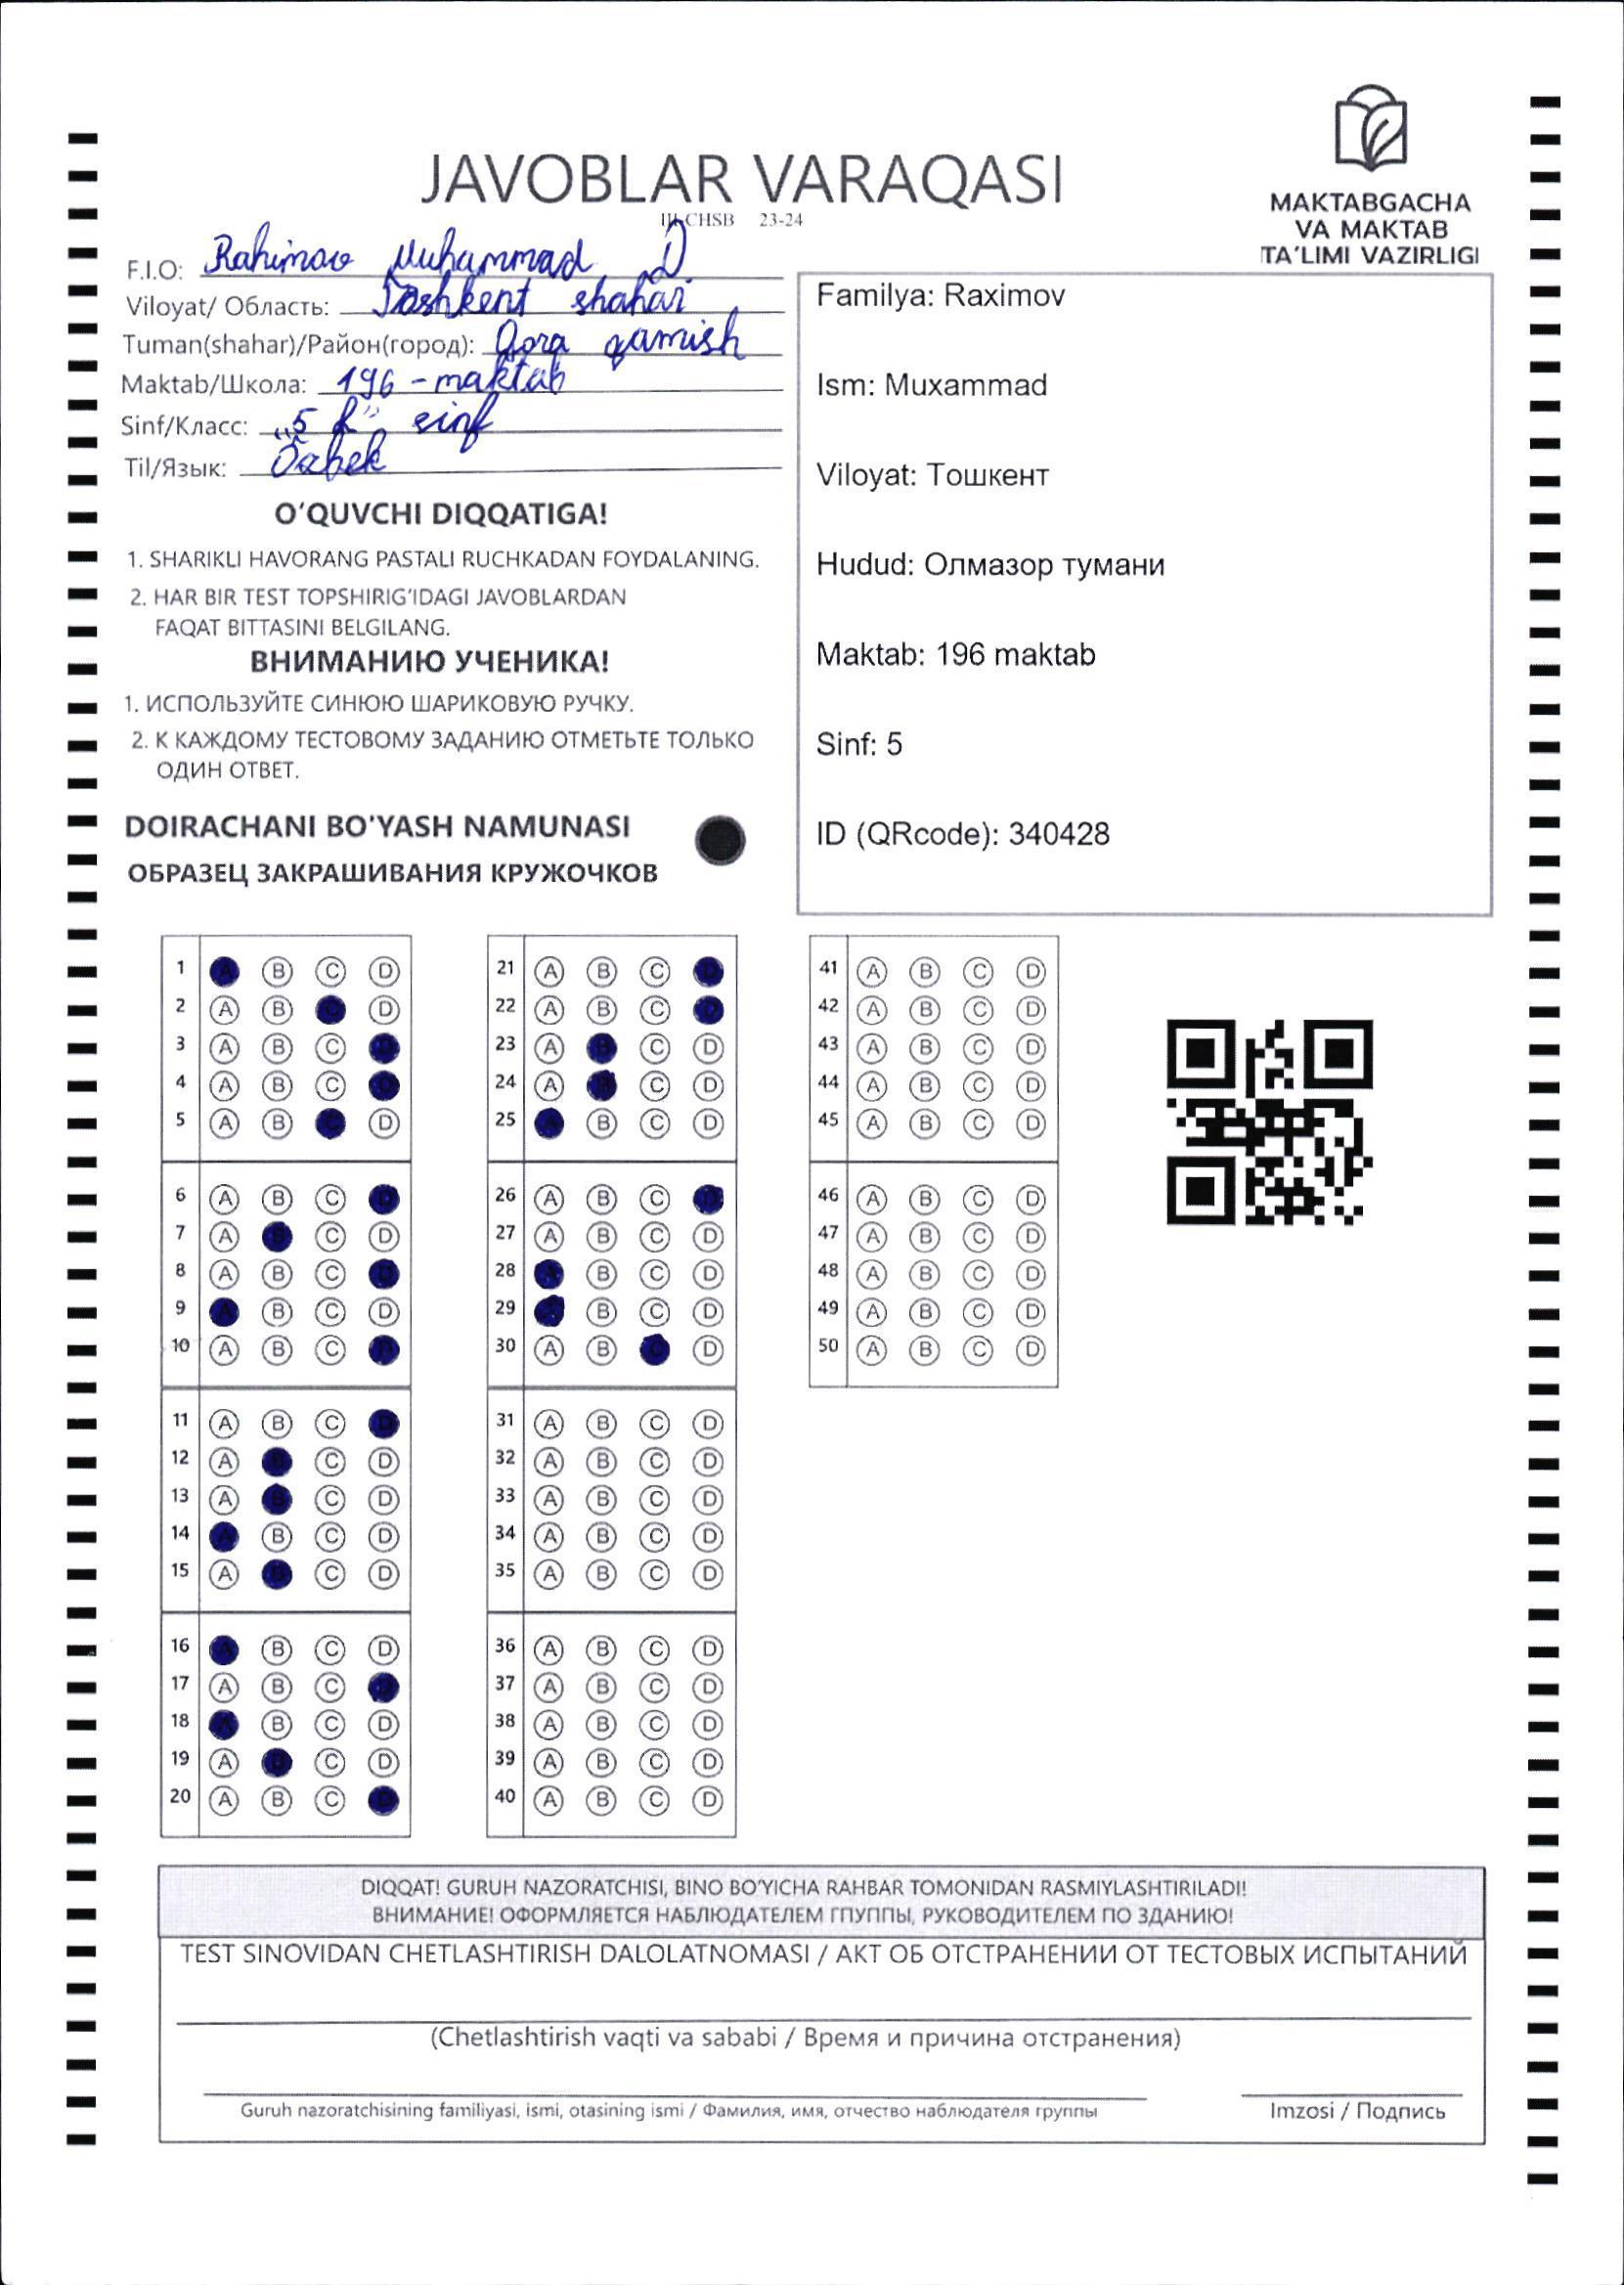 JAVOBLAR VARAQASI
III CHSB 23-24
MAKTABGACHA
VA MAKTAB
TA'LIMI VAZIRLIGI
F.I.O: Rahimov Muhammad D
Viloyat/ Область: Toshkent shahar
Tuman(shahar)/Район(город): Qora qamish
Maktab/Школа: 196 - maktab
Sinf/Класс: „5 " sinf
Til/Язык: Õzbek
O'QUVCHI DIQQATIGA!
1. SHARIKLI HAVORANG PASTALI RUCHKADAN FOYDALANING.
2. HAR BIR TEST TOPSHIRIG'IDAGI JAVOBLARDAN
FAQAT BITTASINI BELGILANG.
ВНИМАНИЮ УЧЕНИКА!
1. ИСПОЛЬЗУЙТЕ СИНЮЮ ШАРИКОВУЮ РУЧКУ.
2. К КАЖДОМУ ТЕСТОВОМУ ЗАДАНИЮ ОТМЕТЬТЕ ТОЛЬКО
ОДИН ОТВЕТ.
DOIRACHANI BO'YASH NAMUNASI
ОБРАЗЕЦ ЗАКРАШИВАНИЯ КРУЖОЧКОВ
Familya: Raximov
Ism: Muxammad
Viloyat: Тошкент
Hudud: Олмазор тумани
Maktab: 196 maktab
Sinf: 5
ID (QRcode): 340428
1 A B C D
2 A B C D
3 A B C D
4 A B C D
5 A B C D
6 A B C D
7 A B C D
8 A B C D
9 A B C D
10 A B C D
11 A B C D
12 A B C D
13 A B C D
14 A B C D
15 A B C D
16 A B C D
17 A B C D
18 A B C D
19 A B C D
20 A B C D
21 A B C D
22 A B C D
23 A B C D
24 A B C D
25 A B C D
26 A B C D
27 A B C D
28 A B C D
29 A B C D
30 A B C D
31 A B C D
32 A B C D
33 A B C D
34 A B C D
35 A B C D
36 A B C D
37 A B C D
38 A B C D
39 A B C D
40 A B C D
41 A B C D
42 A B C D
43 A B C D
44 A B C D
45 A B C D
46 A B C D
47 A B C D
48 A B C D
49 A B C D
50 A B C D
DIQQAT! GURUH NAZORATCHISI, BINO BO'YICHA RAHBAR TOMONIDAN RASMIYLASHTIRILADI!
ВНИМАНИЕ! ОФОРМЛЯЕТСЯ НАБЛЮДАТЕЛЕМ ГПУППЫ, РУКОВОДИТЕЛЕМ ПО ЗДАНИЮ!
TEST SINOVIDAN CHETLASHTIRISH DALOLATNOMASI / АКТ ОБ ОТСТРАНЕНИИ ОТ ТЕСТОВЫХ ИСПЫТАНИЙ
(Chetlashtirish vaqti va sababi / Время и причина отстранения)
Guruh nazoratchisining familiyasi, ismi, otasining ismi / Фамилия, имя, отчество наблюдателя группы
Imzosi / Подпись